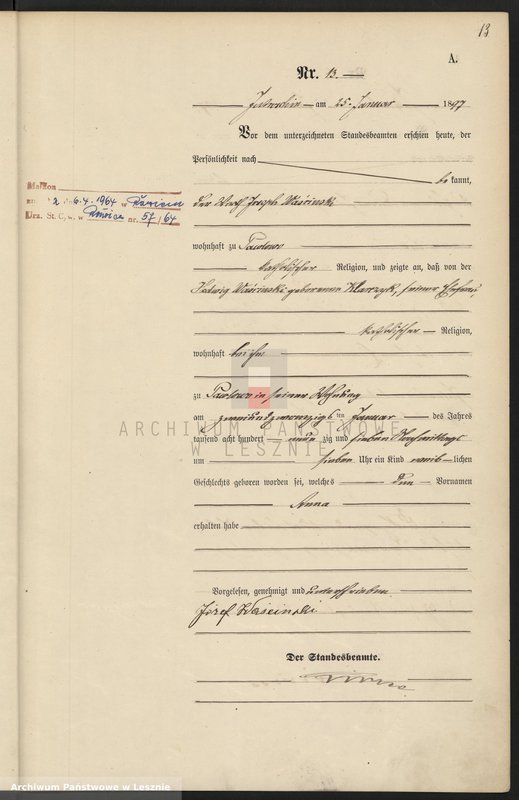 13
A.
Nr. 13.
am 25. Januar 1897
Vor dem unterzeichneten Standesbeamten erschien heute, der
Persönlichkeit nach
bekannt,
der Joseph
wohnhaft zu
katholischer Religion, und zeigte an, daß von der
Hedwig geborenen seiner Ehefrau,
katholischer Religion,
wohnhaft bei ihm
zu in seiner Wohnung
am zweiundzwanzigsten Januar des Jahres
tausend acht hundert neunzig und sieben Nachmittags
um sieben Uhr ein Kind weiblichen
Geschlechts geboren worden sei, welches den Vornamen
Anna
erhalten habe
Vorgelesen, genehmigt und unterschrieben
Józef
Der Standesbeamte.
6.4.1964 w
Urz. St. C. w nr. 57/64
ARCHIWUM PAŃSTWOWE
W LESZNIE
Archiwum Państwowe w Lesznie